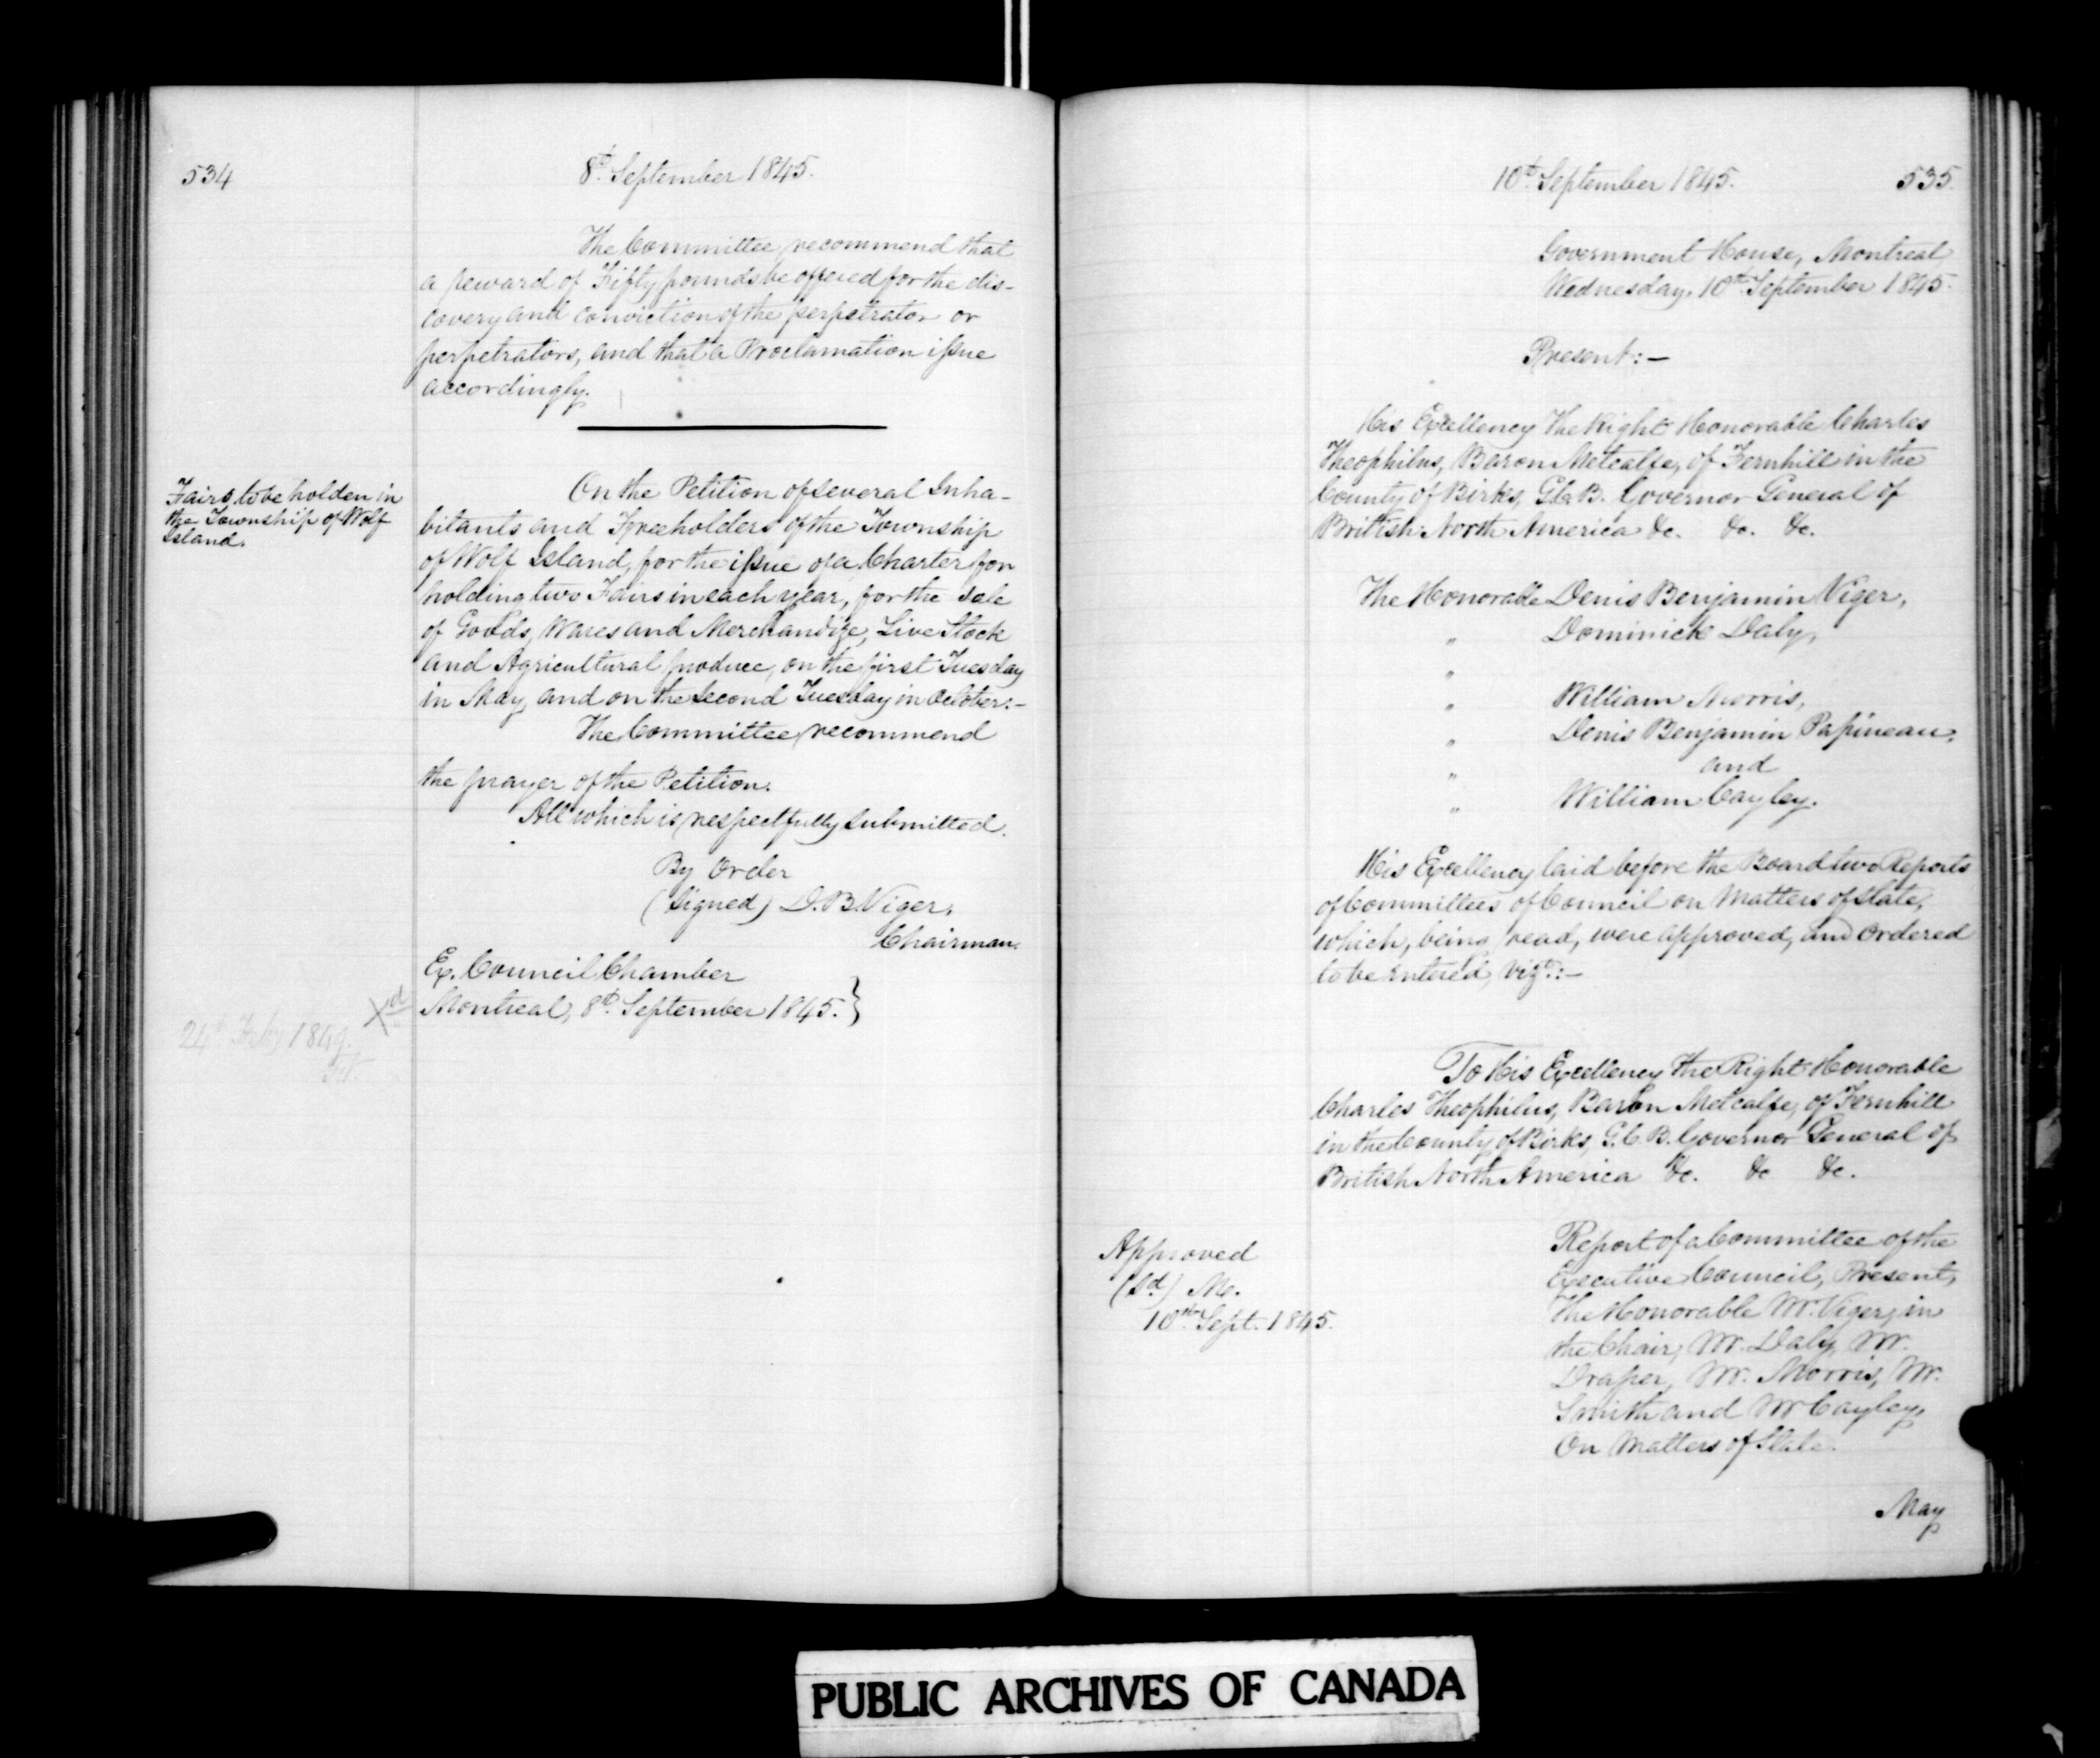 534
8th September 1845.
The Committee recommend that
a reward of Fifty pounds be offered for the dis-
covery and conviction of the perpetrator or
perpetrators, and that a Proclamation issue
accordingly.
Fairs to be holden in
the Township of Wolf
Island.
On the Petition of several Inha-
bitants and Freeholders of the Township
of Wolf Island, for the issue of a Charter for
holding two Fairs in each year, for the sale
of Goods, Wares and Merchandize, Live Stock
and Agricultural produce, on the first Tuesday
in May, and on the second Tuesday in October:-
The Committee recommend
the prayer of the Petition.
All which is respectfully submitted.
By Order
(Signed) D. B. Viger,
Chairman.
Ex. Council Chamber
Montreal, 8th September 1845. }
Xd
24th Feby 1849.
10th September 1845.
535.
Government House, Montreal
Wednesday, 10th September 1845.
Present:-
His Excellency The Right Honorable Charles
Theophilus, Baron Metcalfe, of Fernhill in the
County of Birks, G.C.B. Governor General of
British North America &c. &c. &c.
The Honorable Denis Benjamin Viger,
" Dominick Daly,
"
" William Morris,
" Denis Benjamin Papineau,
" and
" William Cayley.
His Excellency laid before the Board two Reports
of Committees of Council on Matters of State,
which, being read, were approved, and ordered
to be entered, vizt:-
To His Excellency The Right Honorable
Charles Theophilus, Baron Metcalfe, of Fernhill
in the County of Birks, G.C.B. Governor General of
British North America &c. &c &c.
Approved
(Sd) M.
10th Sept. 1845.
Report of a Committee of the
Executive Council, Present,
The Honorable Mr. Viger, in
the Chair, Mr. Daly, Mr.
Draper, Mr. Morris, Mr.
Smith and Mr Cayley,
On Matters of State.
May
PUBLIC ARCHIVES OF CANADA